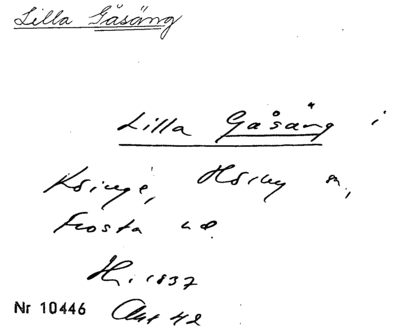 Lilla Gåsäng
Lilla Gåsäng i
Hörby sn,
Frosta hd
H. 1837
Nr 10446 Akt 42